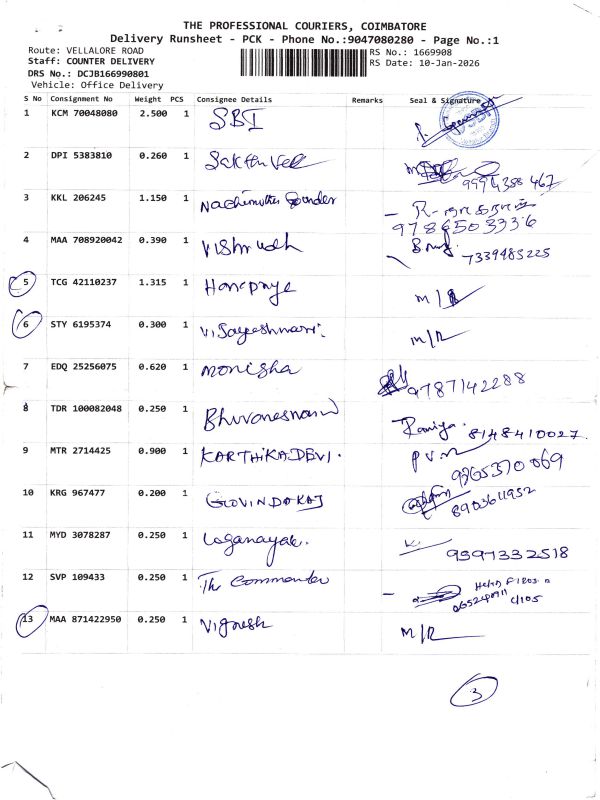 THE PROFESSIONAL COURIERS, COIMBATORE
Delivery Runsheet - PCK - Phone No.:9047080280 - Page No.:1
Route: VELLALORE ROAD
RS No.: 1669908
Staff: COUNTER DELIVERY
RS Date: 10-Jan-2026
DRS No.: DCJB166990801
Vehicle: Office Delivery
S No Consignment No Weight PCS Consignee Details Remarks Seal & Signature
1 KCM 70048080 2.500 1 SBI
2 DPI 5383810 0.260 1 Sakthi Vel
9994388 467
3 KKL 206245 1.150 1 Nachimuthu Gounder
9786503336
4 MAA 708920042 0.390 1 Vishnudh
7339485225
5 TCG 42110237 1.315 1 M/R
6 STY 6195374 0.300 1 M/R
7 EDQ 25256075 0.620 1 monisha
9787142288
8 TDR 100082048 0.250 1 Bhuvaneswari
Ramya. 8148410027
9 MTR 2714425 0.900 1 KARTHIKADEVI. P V M
9865370069
10 KRG 967477 0.200 1 GOVINDARAJ
8903611952
11 MYD 3078287 0.250 1 Loganayaki.
9597332518
12 SVP 109433 0.250 1 The Commander
13 MAA 871422950 0.250 1 Vignesh M/R
3